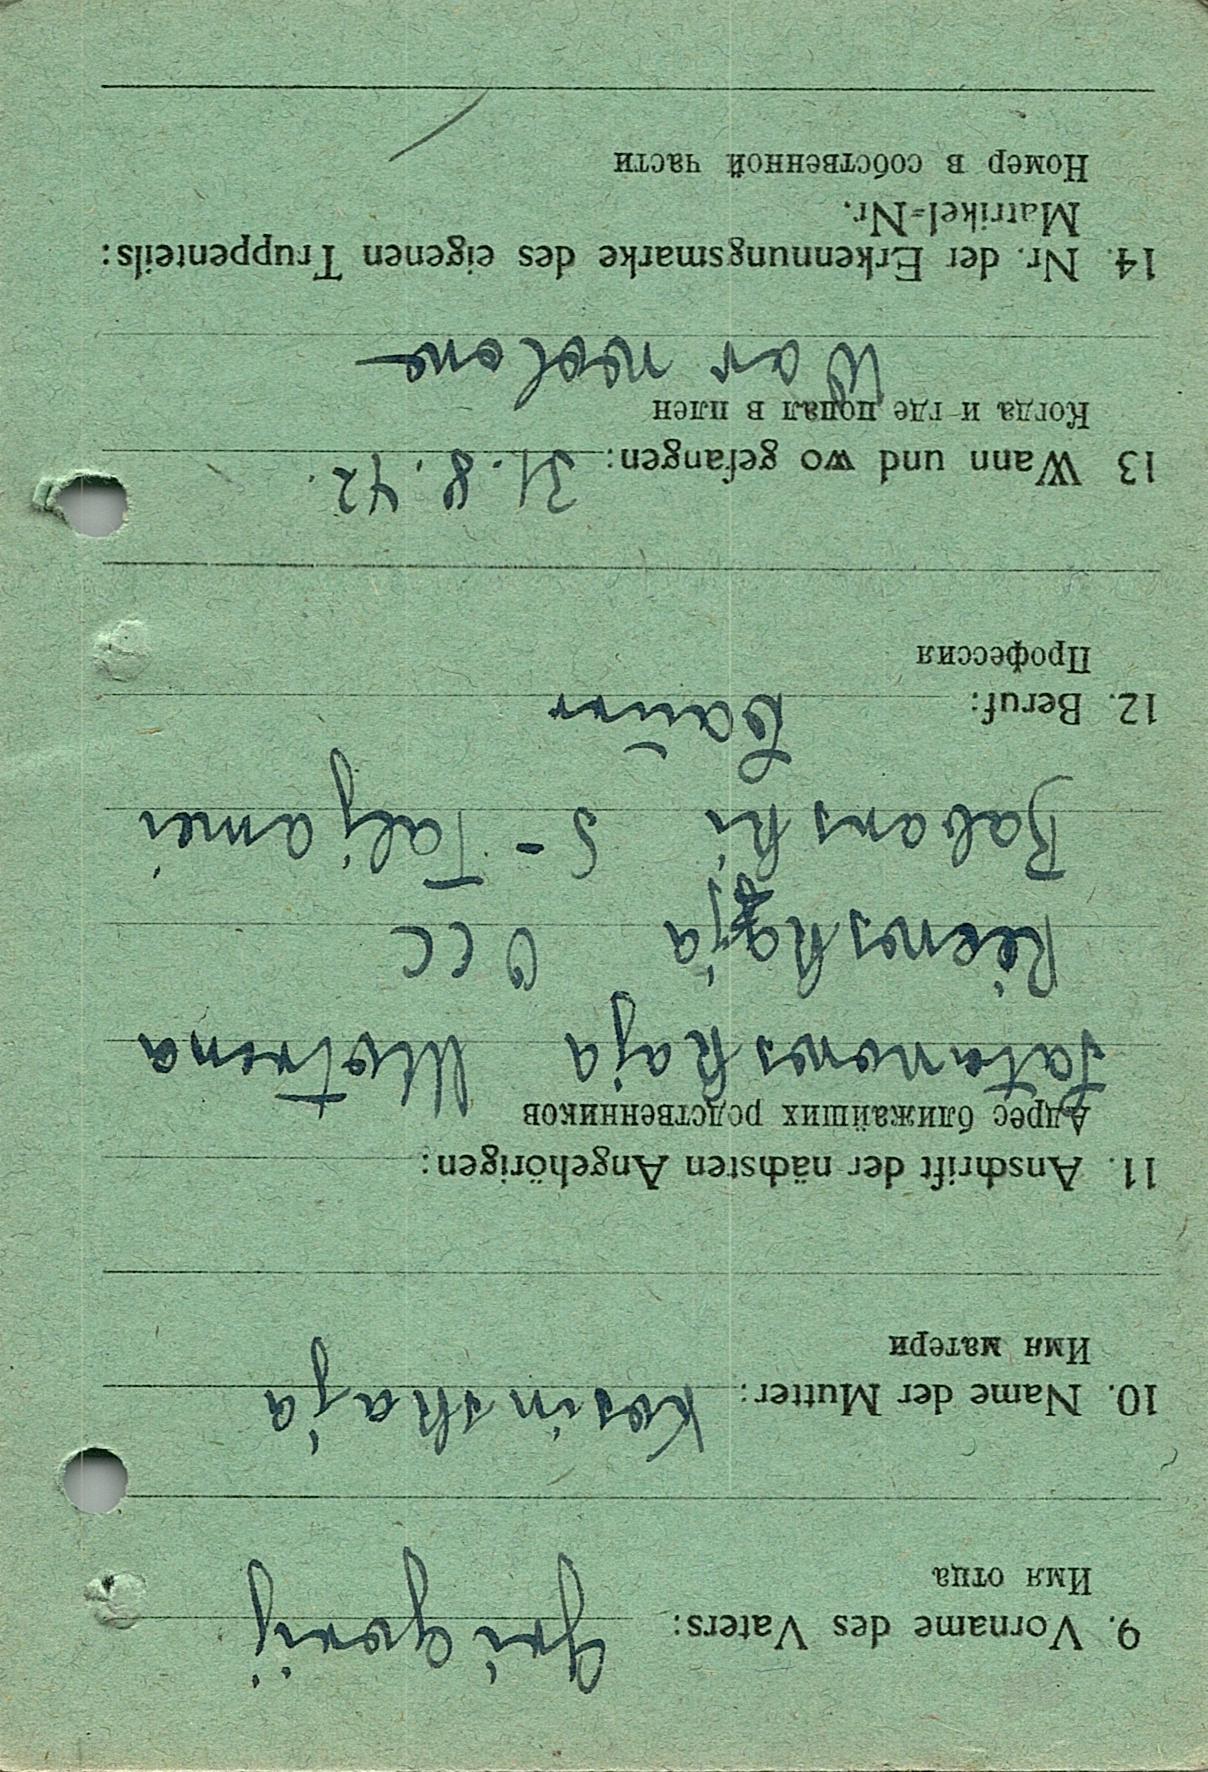 9. Vorname des Vaters: Grigorij
Имя отца
10. Name der Mutter: Kosinskaja
Имя матери
11. Anschrift der nächsten Angehörigen:
Адрес ближайших родственников
Satanowskaja Motrena
Kiewskaja OCC
Babanski S-Taljamei
12. Beruf: Bauer
Профессия
13 Wann und wo gefangen: 31.8.42.
Когда и где попал в плен
War
14. Nr. der Erkennungsmarke des eigenen Truppenteils:
Matrikel=Nr.
Номер в собственной части